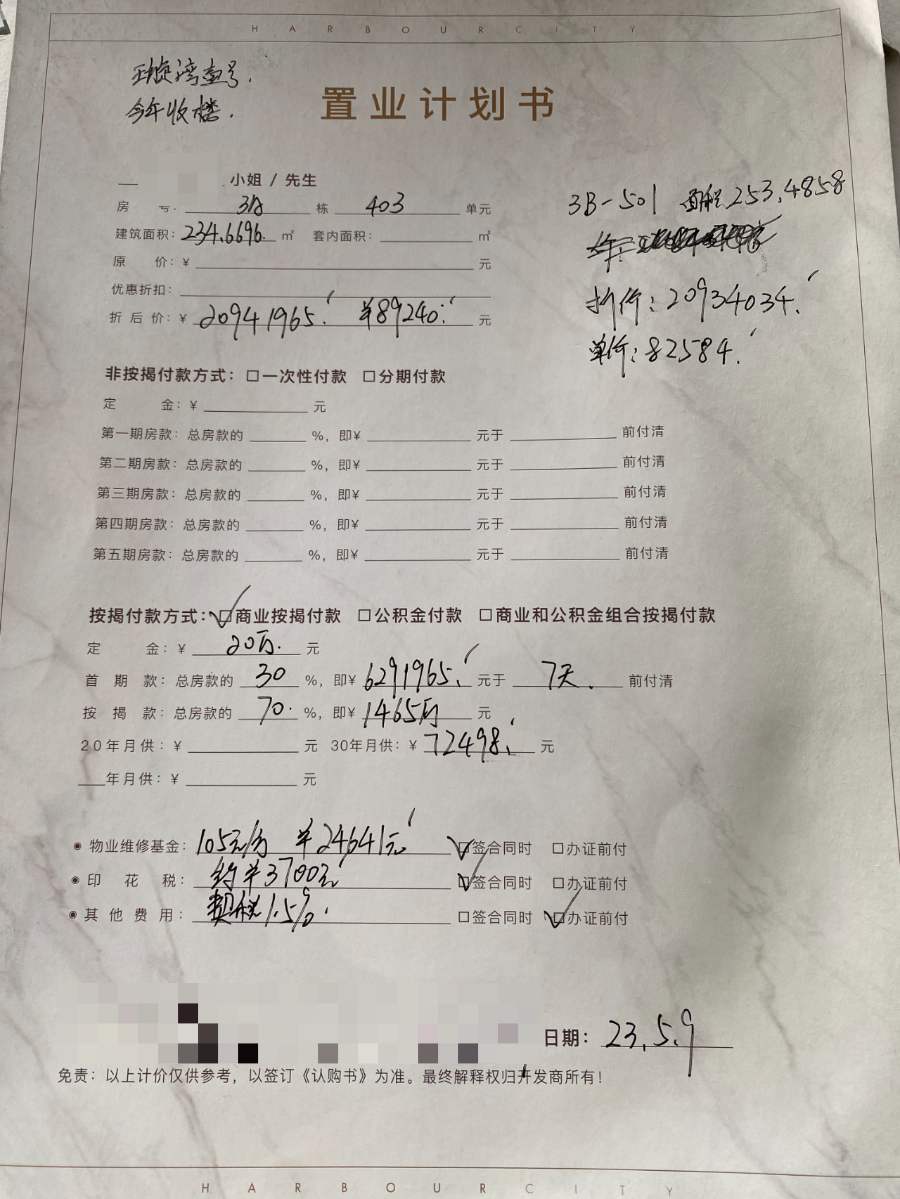 HARBOURCITY
琁湾壹号.
今年收楼.
置业计划书
小姐 / 先生
房 号: 3A 栋 403 单元
3B-501 面积253.4858
建筑面积: 234.6696 ㎡ 套内面积: ㎡
原 价: ¥ 元
优惠折扣:
折价: 20934034.
折后价: ¥ 20941965. ¥89240. 元
单价: 82584.
非按揭付款方式: □一次性付款 □分期付款
定 金: ¥ 元
第一期房款: 总房款的 %, 即¥ 元于 前付清
第二期房款: 总房款的 %, 即¥ 元于 前付清
第三期房款: 总房款的 %, 即¥ 元于 前付清
第四期房款: 总房款的 %, 即¥ 元于 前付清
第五期房款: 总房款的 %, 即¥ 元于 前付清
按揭付款方式: ☑商业按揭付款 □公积金付款 □商业和公积金组合按揭付款
定 金: ¥ 20万. 元
首 期 款: 总房款的 30 %, 即¥ 6291965. 元于 7天. 前付清
按 揭 款: 总房款的 70. %, 即¥ 1465万 元
20年月供: ¥ 元 30年月供: ¥ 72498. 元
年月供: ¥ 元
◉ 物业维修基金: 105元/方 ¥24641元 ☑签合同时 □办证前付
◉ 印 花 税: 约¥3700元 ☑签合同时 □办证前付
◉ 其 他 费 用: 契税1.5%. □签合同时 ☑办证前付
日期: 23.5.9
免责: 以上计价仅供参考, 以签订《认购书》为准。最终解释权归开发商所有!
HARBOURCITY